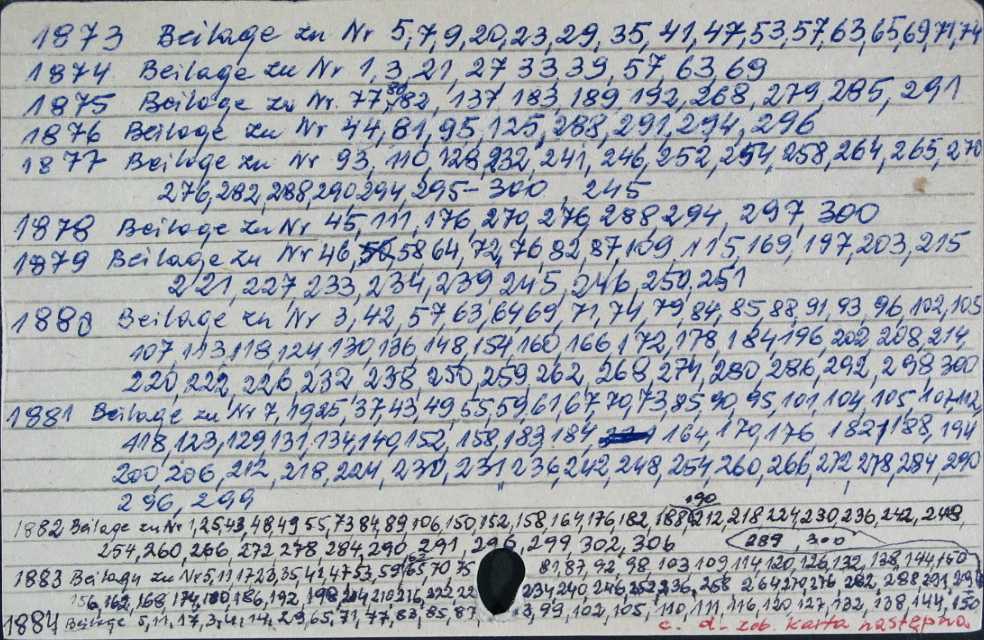 1873 Beilage zu Nr 5,7,9,20,23,29,35,41,47,53,57,63,65,69,71,74
1874 Beilage zu Nr 1,3,21,27 33,39,57,63,69
1875 Beilage zu Nr. 77,80,82, 137 183, 189, 192, 268, 279, 285, 291
1876 Beilage zu Nr 44,81,95,125,288,291,294,296
1877 Beilage zu Nr 93, 110, 128, 232, 241, 246, 252, 254, 258, 264, 265, 270
276, 282, 288, 290 294, 295-300, 245
1878 Beilage zu Nr 45, 111, 176, 270, 276, 288, 294, 297, 300
1879 Beilage zu Nr 46, 58 64, 72, 76 82, 87, 109, 115, 169, 197, 203, 215
221, 227, 233, 234, 239 245, 246, 250, 251
1880 Beilage zu Nr 3, 42, 57, 63, 64 69, 71, 74, 79, 84, 85 88, 91, 93, 96, 102, 105
107, 113, 118, 124, 130, 136, 148, 154, 160, 166, 172, 178, 184, 196, 202, 208, 214
220, 222, 226, 232, 238, 250, 259, 262, 268, 274, 280, 286, 292, 298 300
1881 Beilage zu Nr 7, 19 25, 37 43, 49, 55, 59, 61, 67, 70, 73, 85, 90, 95, 101, 104, 105, 107, 112
118, 123, 129, 131, 134, 140, 152, 158, 183, 184, 164, 170, 176, 182, 188, 194
200, 206, 212, 218, 224, 230, 231, 236 242, 248, 254, 260, 266, 272, 278, 284, 290
296, 299
190
1882 Beilage zu Nr 1, 25, 43, 48, 49, 55, 73 84, 89, 106, 150, 152, 158, 164, 176, 182, 188, 212, 218 224, 230, 236, 242, 248
254, 260, 266, 272 278, 284, 290, 291, 296, 299, 302, 306 289, 300
1883 Beilage zu Nr 5, 11, 17 23, 35, 41, 47 53, 59, 63, 65, 70, 75 81, 87, 92, 98, 103, 109, 114, 120, 126, 132, 138, 144, 150
156, 162, 168, 174, 180, 186, 192, 198, 204, 210, 216, 222 234 240, 246, 252, 258 264 270 276 282, 288
1884 Beilage 5, 11, 17, 65, 71, 77, 83, 85, 87 99, 102, 105, 110, 111, 116, 120, 127, 132, 138, 144, 150
c. d. zob. karta następna